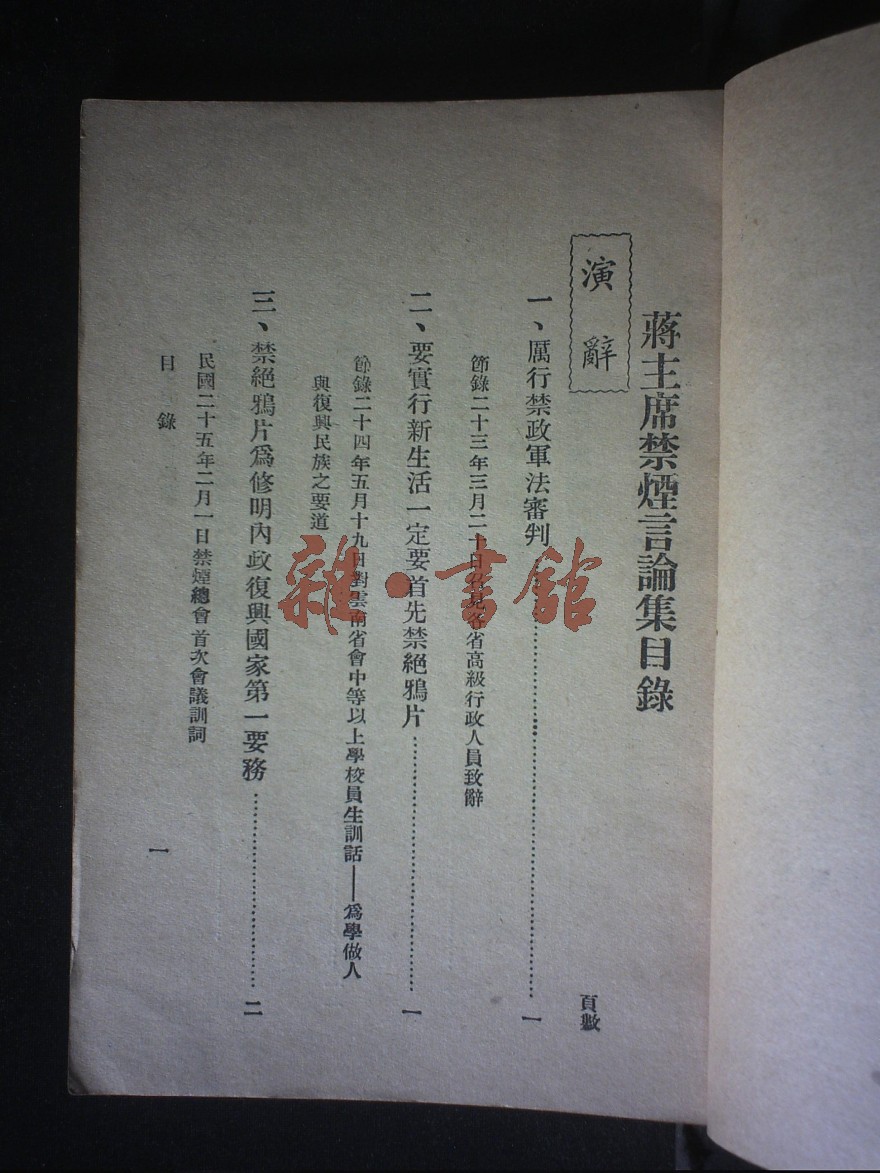 蔣主席禁煙言論集目錄
演辭
頁數
一、厲行禁政軍法審判……一
節錄二十三年三月二十日召見各省高級行政人員致辭
二、要實行新生活一定要首先禁絕鴉片……一
節錄二十四年五月十九日對雲南省會中等以上學校員生訓話——爲學做人
與復興民族之要道
三、禁絕鴉片爲修明內政復興國家第一要務……二
民國二十五年二月一日禁煙總會首次會議訓詞
目錄
一
雜·書館